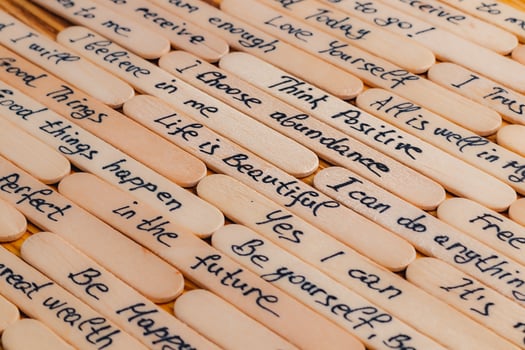 to me
to receive
am enough
Love Yourself
Today
to go!
receive
to
I will
I believe in me
I choose abundance
Think Positive
All is well in my
I Trus
Good Things
Good things happen
Life is Beautiful
Yes I can
I can do anything
Free
Perfect
in the future
Be yourself Be
It's
great wealth
Be Happy